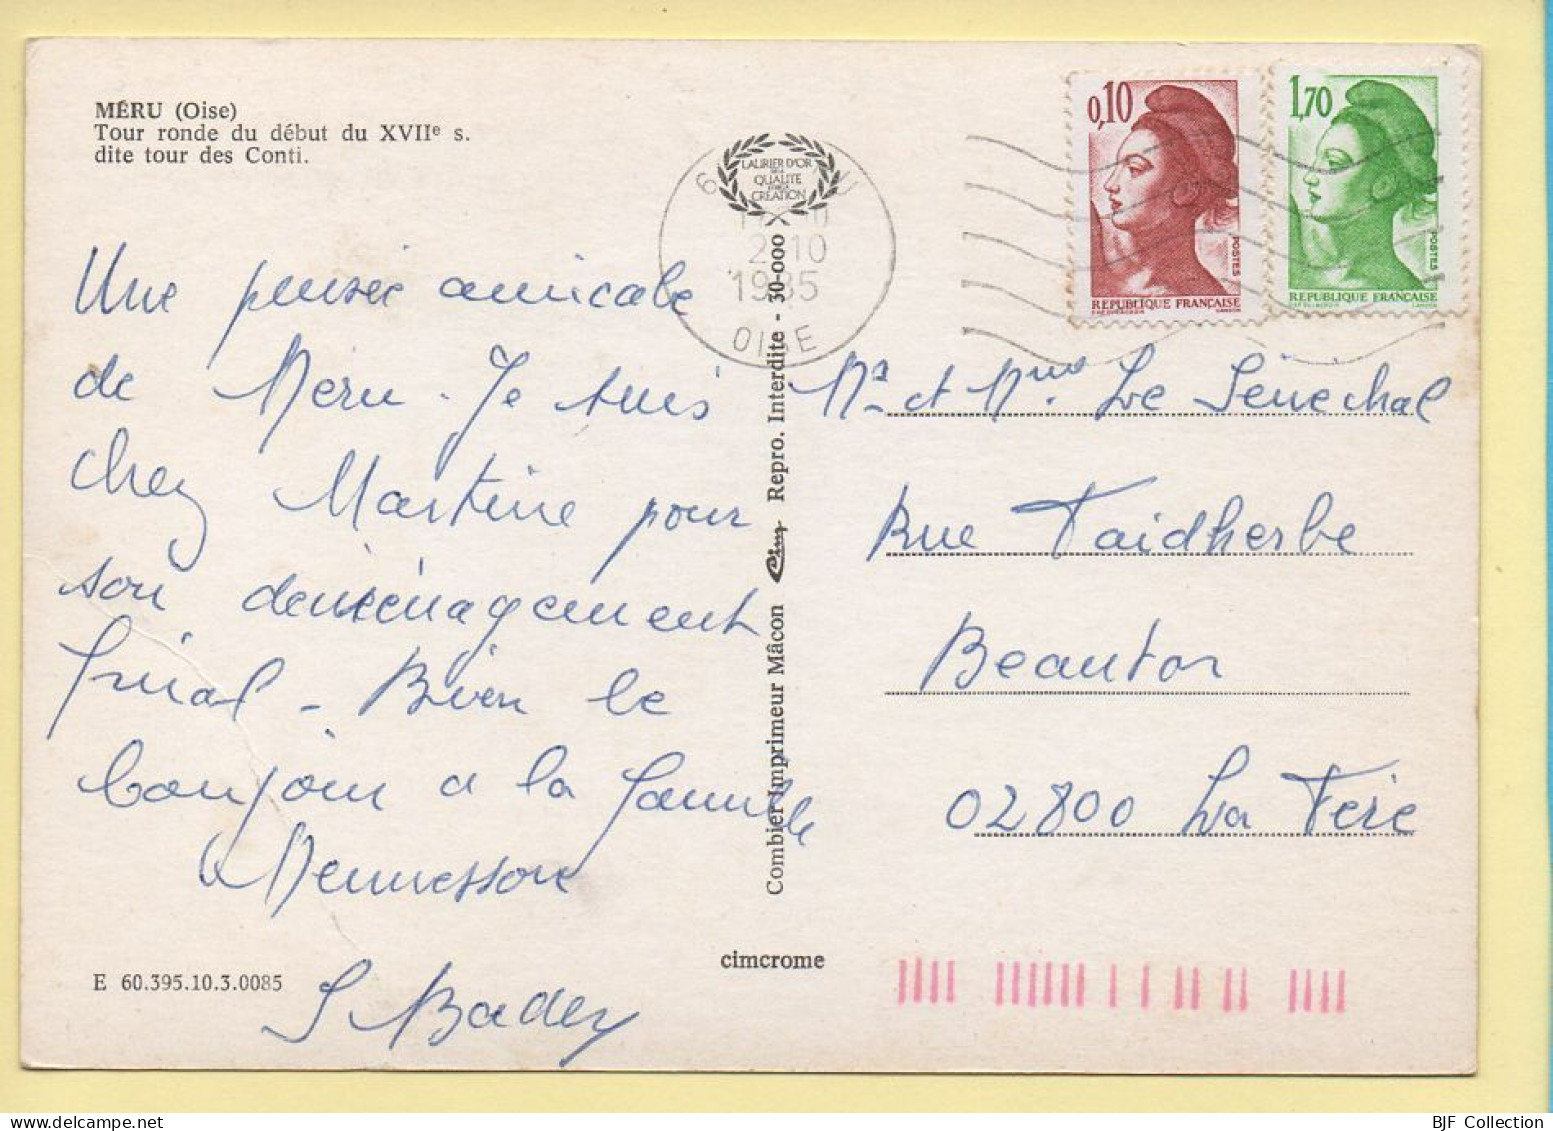 MÉRU (Oise)
Tour ronde du début du XVIIe s.
dite tour des Conti.
LAURIER D'OR
DE LA
QUALITE
CREATION
2 10
1985
OISE
0,10
POSTES
REPUBLIQUE FRANÇAISE
1,70
POSTES
REPUBLIQUE FRANÇAISE
Une pensée amicale
de Méru. Je suis
chez Martine pour
son deménagement
final - Bien le
bonjour a la famille
Mennessone
S Badey
Combier Imprimeur Mâcon Cim Repro. Interdite - 30-000
Mr et Mme Le Sénechal
Rue Faidherbe
Beautor
02800 La Fère
E 60.395.10.3.0085
cimcrome
BJF Collection